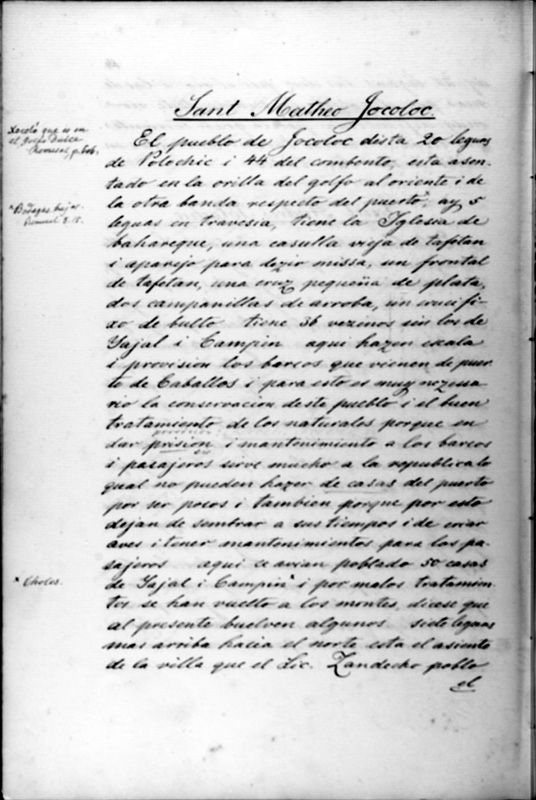 Sant Matheo Jocoloc.
Xocolo que es en
el Golfo Dulce
Remesal, p. 606.
El pueblo de Jocoloc dista 20 leguas
de Polochic i 44 del combento, esta asen-
tado en la orilla del golfo al oriente i de
la otra banda respecto del puerto^x, ay 5
x Bodegas bajas.
leguas en travesia, tiene la Iglesia de
bahareque, una casulla vieja de tafetan
i aparejo para dezir missa, un frontal
de tafetan, una cruz pequeña de plata,
dos campanillas de arroba, un crucifi-
xo de bulto tiene 36 vezinos sin los de
Jajal i Campin aqui hazen escala
i provision los barcos que vienen de puer-
to de Caballos i para esto es muy nezesa
rio la conservacion deste pueblo i el buen
tratamiento de los naturales porque en
provision
dar prision i mantenimiento a los barcos
i pasajeros sirve mucho a la republica lo
en
qual no pueden hazer de casas del puerto
por ser pocos i tambien porque por esto
dejan de sembrar a sus tiempos i de criar
aves i tener mantenimientos para los pa-
sajeros aqui se avian poblado 50 casas
x Choles.
de Jajal i Campin^x i por malos tratamien-
tos se han vuelto a los montes, dicese que
al presente buelven algunos siete leguas
mas arriba hacia el norte esta el asiento
de la villa que el Lic. Zandecho poblo
el